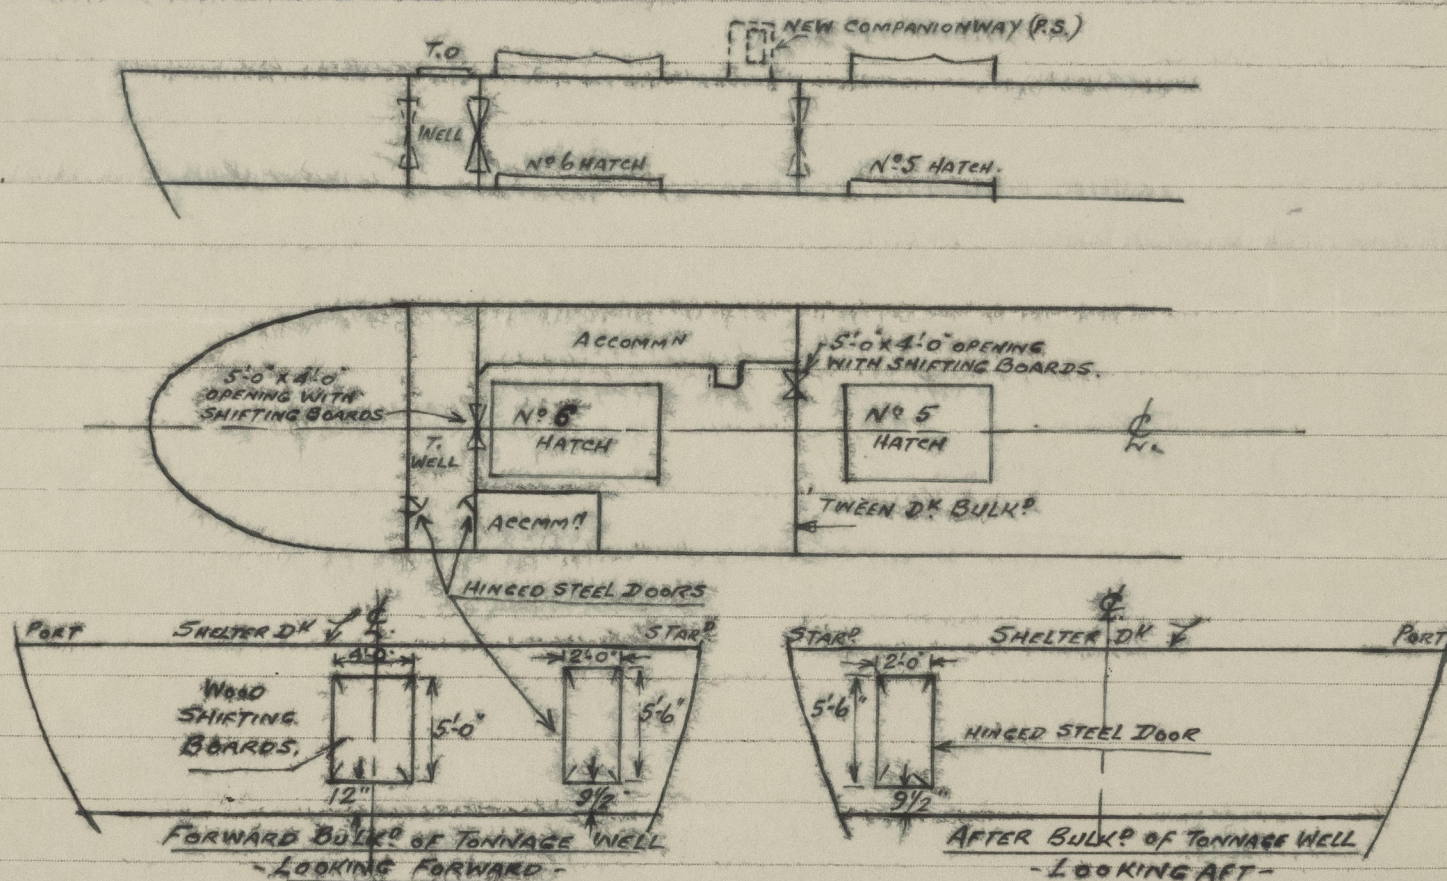 NEW COMPANIONWAY (P.S.)
T.O
WELL
Nº 6 HATCH
Nº 5 HATCH.
ACCOMMN
5'-0" X 4'-0" OPENING
WITH SHIFTING BOARDS.
5'-0" X 4'-0"
OPENING WITH
SHIFTING BOARDS
Nº 6
HATCH
Nº 5
HATCH
T.
WELL
ACCMMN
'TWEEN DK BULKD
HINGED STEEL DOORS
PORT
SHELTER DK
STARD
4'-0"
2'-0"
WOOD
SHIFTING
BOARDS.
5'-0"
5'-6"
12"
9½"
FORWARD BULKD OF TONNAGE WELL
- LOOKING FORWARD -
STARD
SHELTER DK
PORT
2'-0"
5'-6"
HINGED STEEL DOOR
9½"
AFTER BULKD OF TONNAGE WELL
- LOOKING AFT -